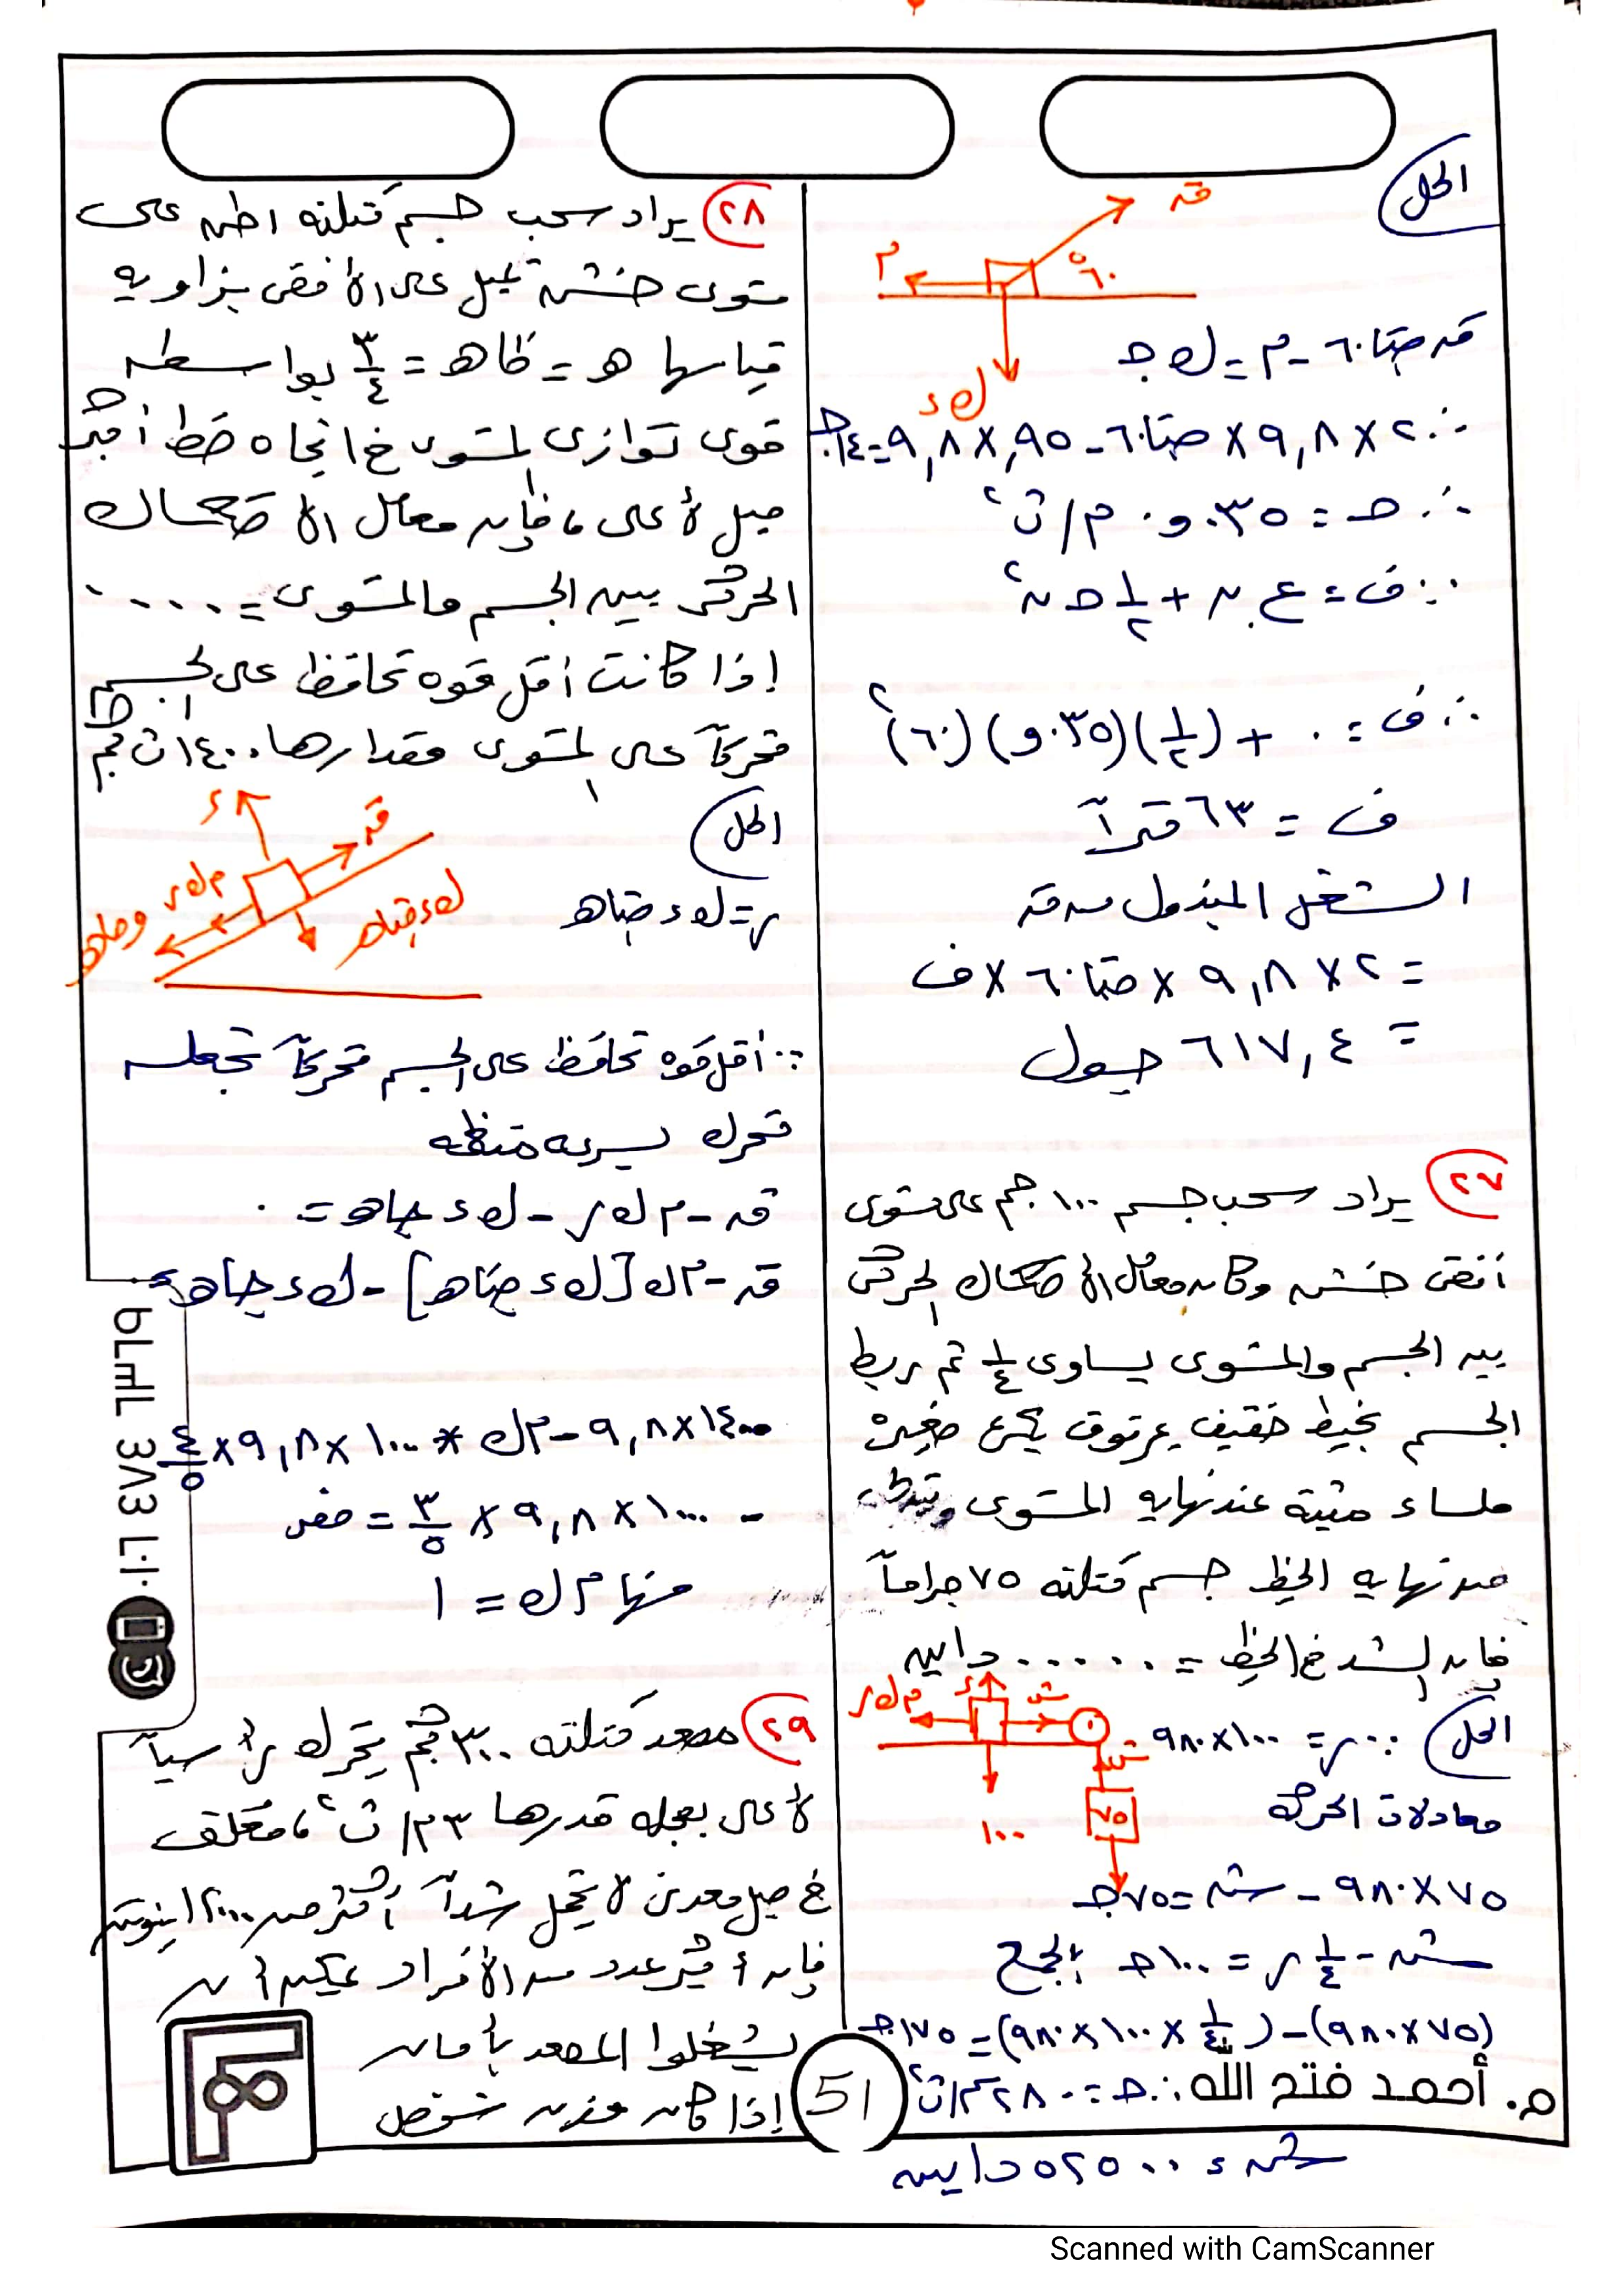 الحل
قہ
م
٦٠°
ك ء
قہ حتا ٦٠ - م = ك جـ
∴ ٢ × ٩,٨ × حتا ٦٠ - ٩٥, × ٩,٨ = ١٤ جـ
∴ حـ = ٠٣٥و٠ م/ث٢
∵ ف = ع. ن + ١/٢ حـ ن٢
∴ ف = ٠ + (١/٢) (٠٣٥و) (٦٠)٢
ف = ٦٣ متراً
الشغل المبذول من قہ
= ٢ × ٩,٨ × حتا ٦٠ × ف
= ٦١٧,٤ جول
٢٧ يراد سحب جسم ١٠٠ جم على مستوى
أفقى خشن وكان معامل الأحتكاك الحركى
بين الجسم والمستوى يساوى ١/٤ ثم ربط
الجسم بخيط خفيف يمر فوق بكرة صغيرة
ملساء مثبتة عند نهاية المستوى وتتدلى
من نهايه الخيط جسم كتلته ٧٥ جراماً
فإن الشد فى الخيط = ..... داين
الحل ∵ ر = ١٠٠ × ٩٨٠
م ك ر
ر
ش
ش
٧٥
١٠٠
معادلات الحركة
٧٥ × ٩٨٠ - ش = ٧٥ جـ
ش - ١/٤ ر = ١٠٠ حـ بالجمع
(٧٥ × ٩٨٠) - (١/٤ × ١٠٠ × ٩٨٠) = ١٧٥ جـ
م. أحمد فتح الله ∴ حـ = ٢٨٠ سم/ث٢
ش = ٥٢٥٠٠ داين
٢٨ يراد سحب جسم كتلته ١ طن على
مستوى خشن تميل على الأفقى بزاويه
قياسها هـ = ظا هـ = ٣/٤ بواسطه
قوى توازى المستوى فى اتجاه خط أكبر
ميل لأعلى ، فإن معامل الاحتكاك
الحركى بين الجسم والمستوى = .....
إذا كانت أقل قوه تحافظ على الجسم
متحركاً على المستوى مقدارها ١٤٠٠ ث كجم
الحل
ر
قہ
م ك ر
ك ء حتا هـ
ر = ك ء حتا هـ
∵ أقل قوه تحافظ على الجسم متحركاً تجعله
متحرك بسرعه منتظمه
قہ - م ك ر - ك ء جا هـ = ٠
قہ - م ك [ك ء حتا هـ] - ك ء جا هـ =
١٤٠٠ × ٩,٨ - م ك * ١٠٠٠ × ٩,٨ × ٤/٥
- ١٠٠٠ × ٩,٨ × ٣/٥ = صفر
منها م ك = ١
٢٩ مصعد كتلته ٣٠٠ كجم يتحرك رأسياً
لأعلى بعجله قدرها ٣ م/ث٢ ، معلق
فى حبل معدنى لا يتحمل شداً أكثر من ١٢٠٠٠ نيوتن
فإن أكبر عدد من الأفراد يمكن أن
يشغلوا المصعد بأمان
إذا كان وزن شخص
51
Scanned with CamScanner